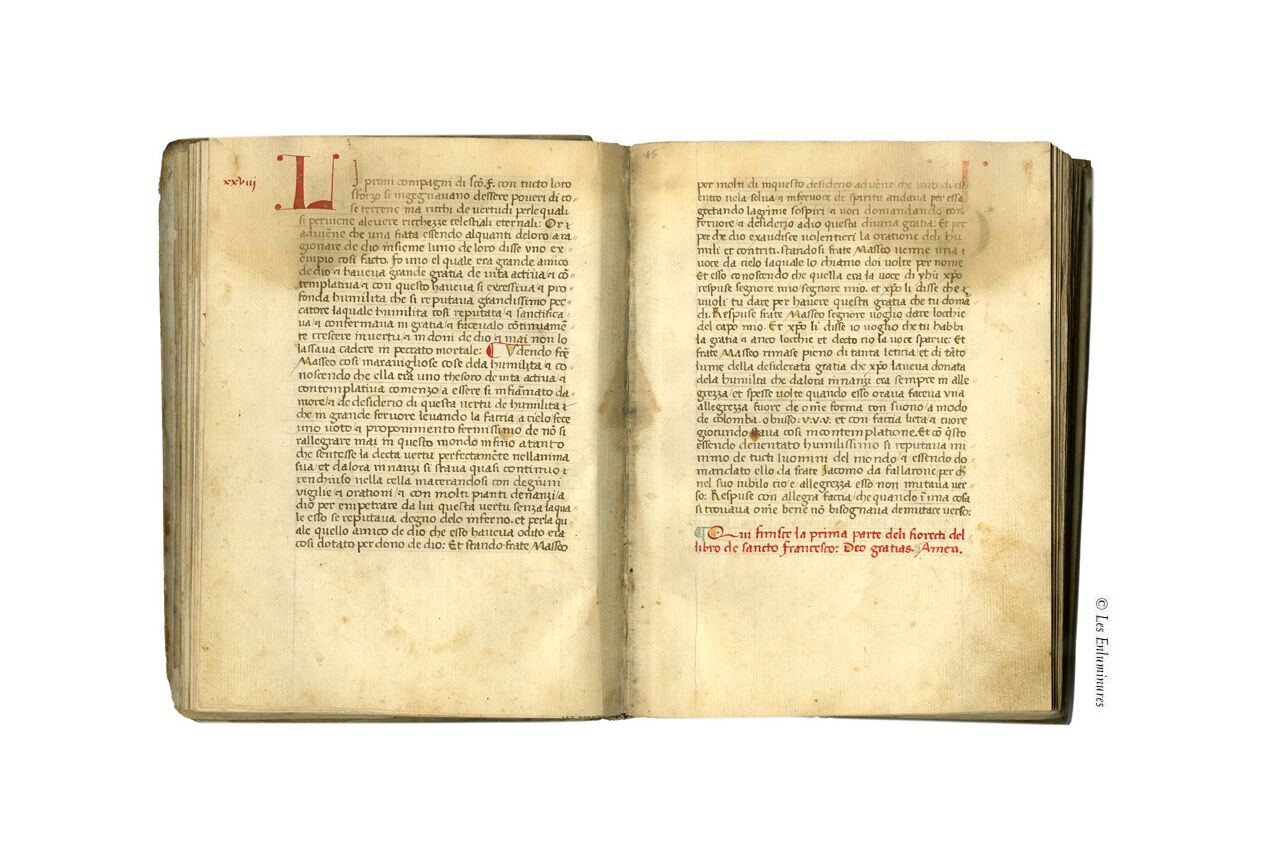 xxviij
LI primi compagni di scō .F. con tucto loro
sforzo si ingegnavano dessere poveri di co-
se terrene ma richi de vertudi per le quali
si perviene ale vere richezze celestiali eternali: Or
adviēne che una fiata essendo alquanti de loro a ra-
gionare de dio insieme luno de loro disse uno ex-
empio cosi facto. fo uno el quale era grande amico
de dio et haveva grande gratia de vita activa et cō-
templativa et con questo haveva si excessiva et pro-
fonda humilita che si reputava grandissimo pec-
catore laquale humilita cosi reputata et sanctifica-
va et confermava in gratia et facevalo cōtinuamē-
te crescere in vertu et in doni de dio et mai non lo
lassava cadere in peccato mortale: Udendo frē
Masseo cosi maravigliose cose dela humilita et co-
noscendo che ella era uno thesoro de vita activa et
contemplativa comenzo a essere si infiāmato da
more et de desiderio di questa vertu de humilita
che in grande fervore levando la faccia a cielo fece
uno voto et proponimento fermissimo de nō si
rallegrare mai in questo mondo infino a tanto
che sentesse la decta vertu perfectamēte nellanima
sua et da lora in nanzi si stava quasi continuo
renchiuso nella cella macerandosi con degiuni
vigilie et orationi et con molti pianti denanzi a
dio per empetrare da lui questa vertu senza laqua-
le esso se reputava degno delo inferno. et per la qu-
ale quello amico de dio che esso haveva odito era
cosi dotato per dono de dio: Et stando frate Masseo
45
per molti di in questo desiderio adviēne che uno di esso
entro nela selva et in fervore de spiritu andava per essa
gectando lagrime sospiri et voci domandando con
fervore et desiderio a dio questa divina gratia. Et per
per che dio exaudisce volentieri la oratione deli hu
mili et contriti. stando si frate Masseo venne una
voce da cielo laquale lo chiamo doi volte per nome
Et esso conoscendo che quella era la voce di yhū xpō
respuse segnore mio segnore mio. et xpō li disse che
vuoli tu dare per havere questa gratia che tu domā
di. Respuse frate Masseo segnore voglio dare locchie
del capo mio. Et xpō li disse io voglio che tu habbi
la gratia et anco locchie et decto cio la voce sparve: Et
frate Masseo rimase pieno di tanta leticia et di tāto
lume della desiderata gratia che xpō laveva donata
dela humilta che da lora in nanzi era sempre in alle
grezza et spesse volte quando esso orava faceva una
allegrezza fuore de om̄e forma con suono a modo
de colomba. obusso. v.v.v. et con faccia lieta et cuore
giocundo stava cosi in contemplatione. Et cō q̄sto
essendo deventato humilissimo si reputava mi
nimo de tucti luomini del mondo et essendo do
mandato ello da frate Jacomo da fallarone per ch̄
nel suo iubilo cio e allegrezza esso non mutava ver-
so: Respuse con allegra faccia che quando ī una cosa
si trovava om̄e bene nō bisognava de mutare verso:
Qui finisce la prima parte deli fiorecti del
libro de sancto Francesco: Deo gratias. Amen.
© Les Enluminures